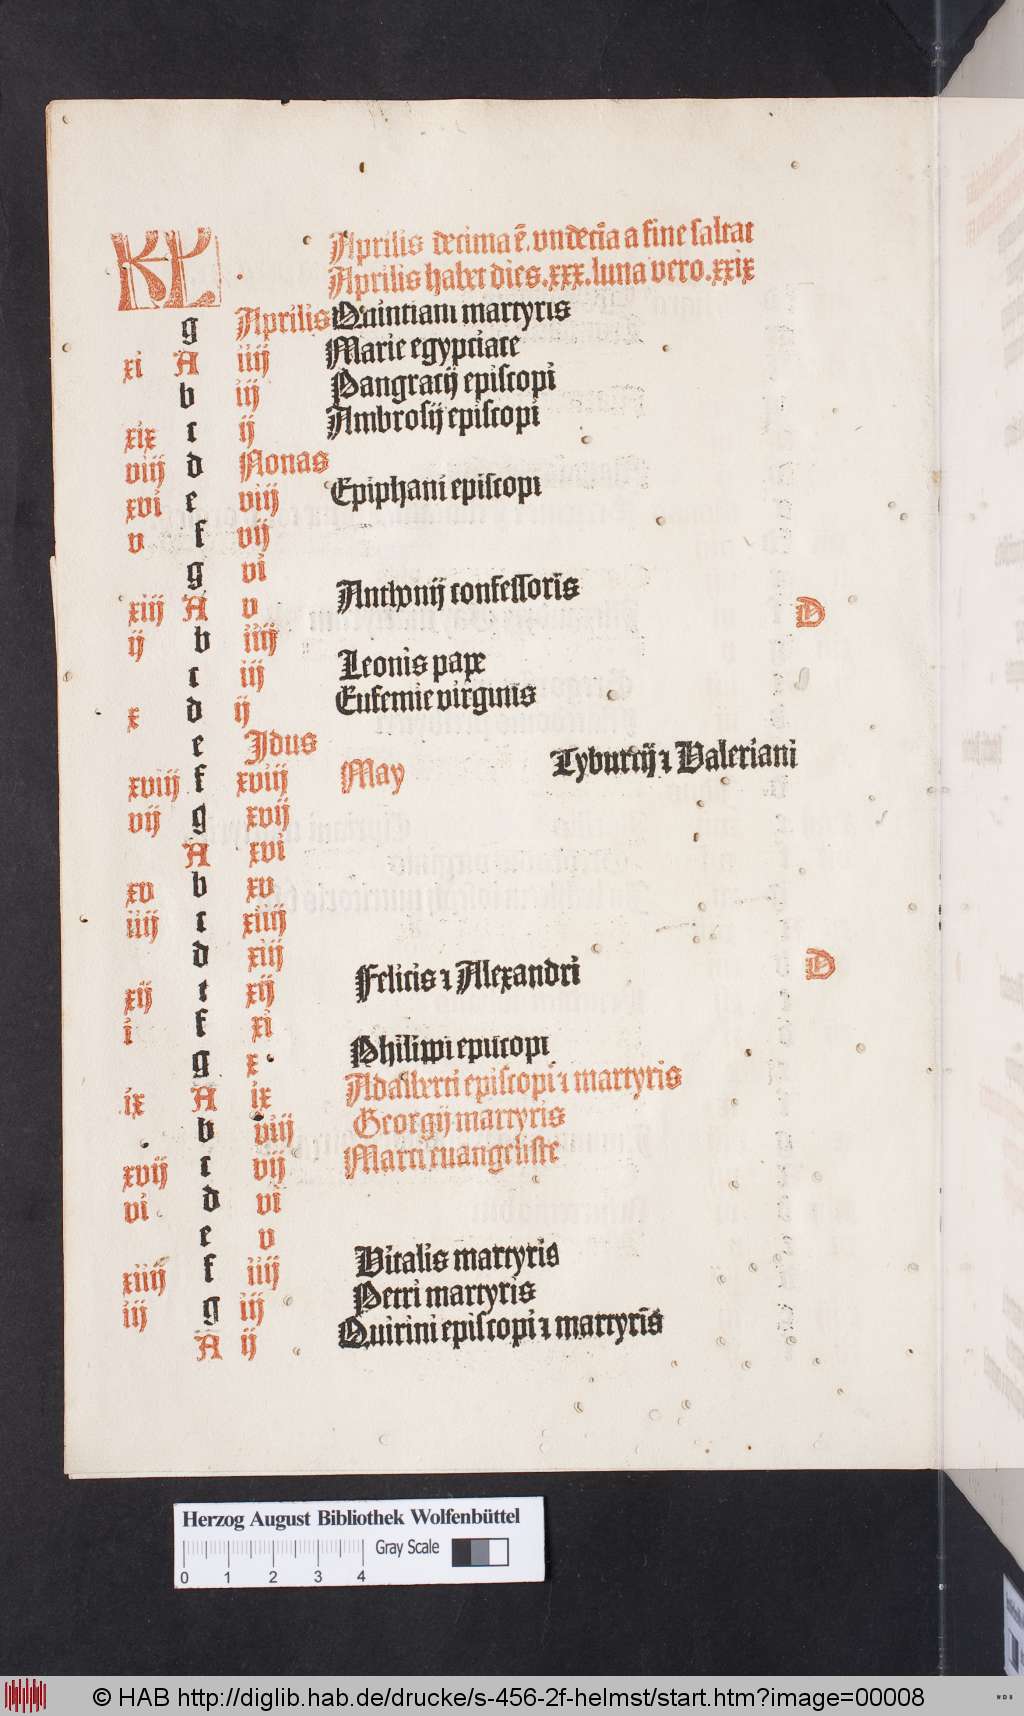 KL Aprilis decima ē. vndecīa a fine saltat
Aprilis habet dies .xxx. luna vero .xxix
g Aprilis Quintiani martyris
xi A iiij Marie egyptiace
b iij Pangracij episcopi
xix c ij Ambrosij episcopi
viij d Nonas
xvi e viij Epiphani episcopi
v f vij
g vi
xiij A v Anthonij confessoris D
ij b iiij
c iij Leonis pape
x d ij Eufemie virginis
e Jdus
xviij f xviij May Tyburcij ⁊ Valeriani
vij g xvij
A xvi
xv b xv
iiij c xiiij
d xiij D
xij e xij Felicis ⁊ Alexandri
i f xi
g x Philippi episcopi
ix A ix Adalberti episcopi ⁊ martyris
b viij Georgij martyris
xvij c vij Marci euangeliste
vi d vi
e v
xiiij f iiij Vitalis martyris
iij g iij Petri martyris
A ij Quirini episcopi ⁊ martyris
Herzog August Bibliothek Wolfenbüttel
Gray Scale
0 1 2 3 4
© HAB http://diglib.hab.de/drucke/s-456-2f-helmst/start.htm?image=00008